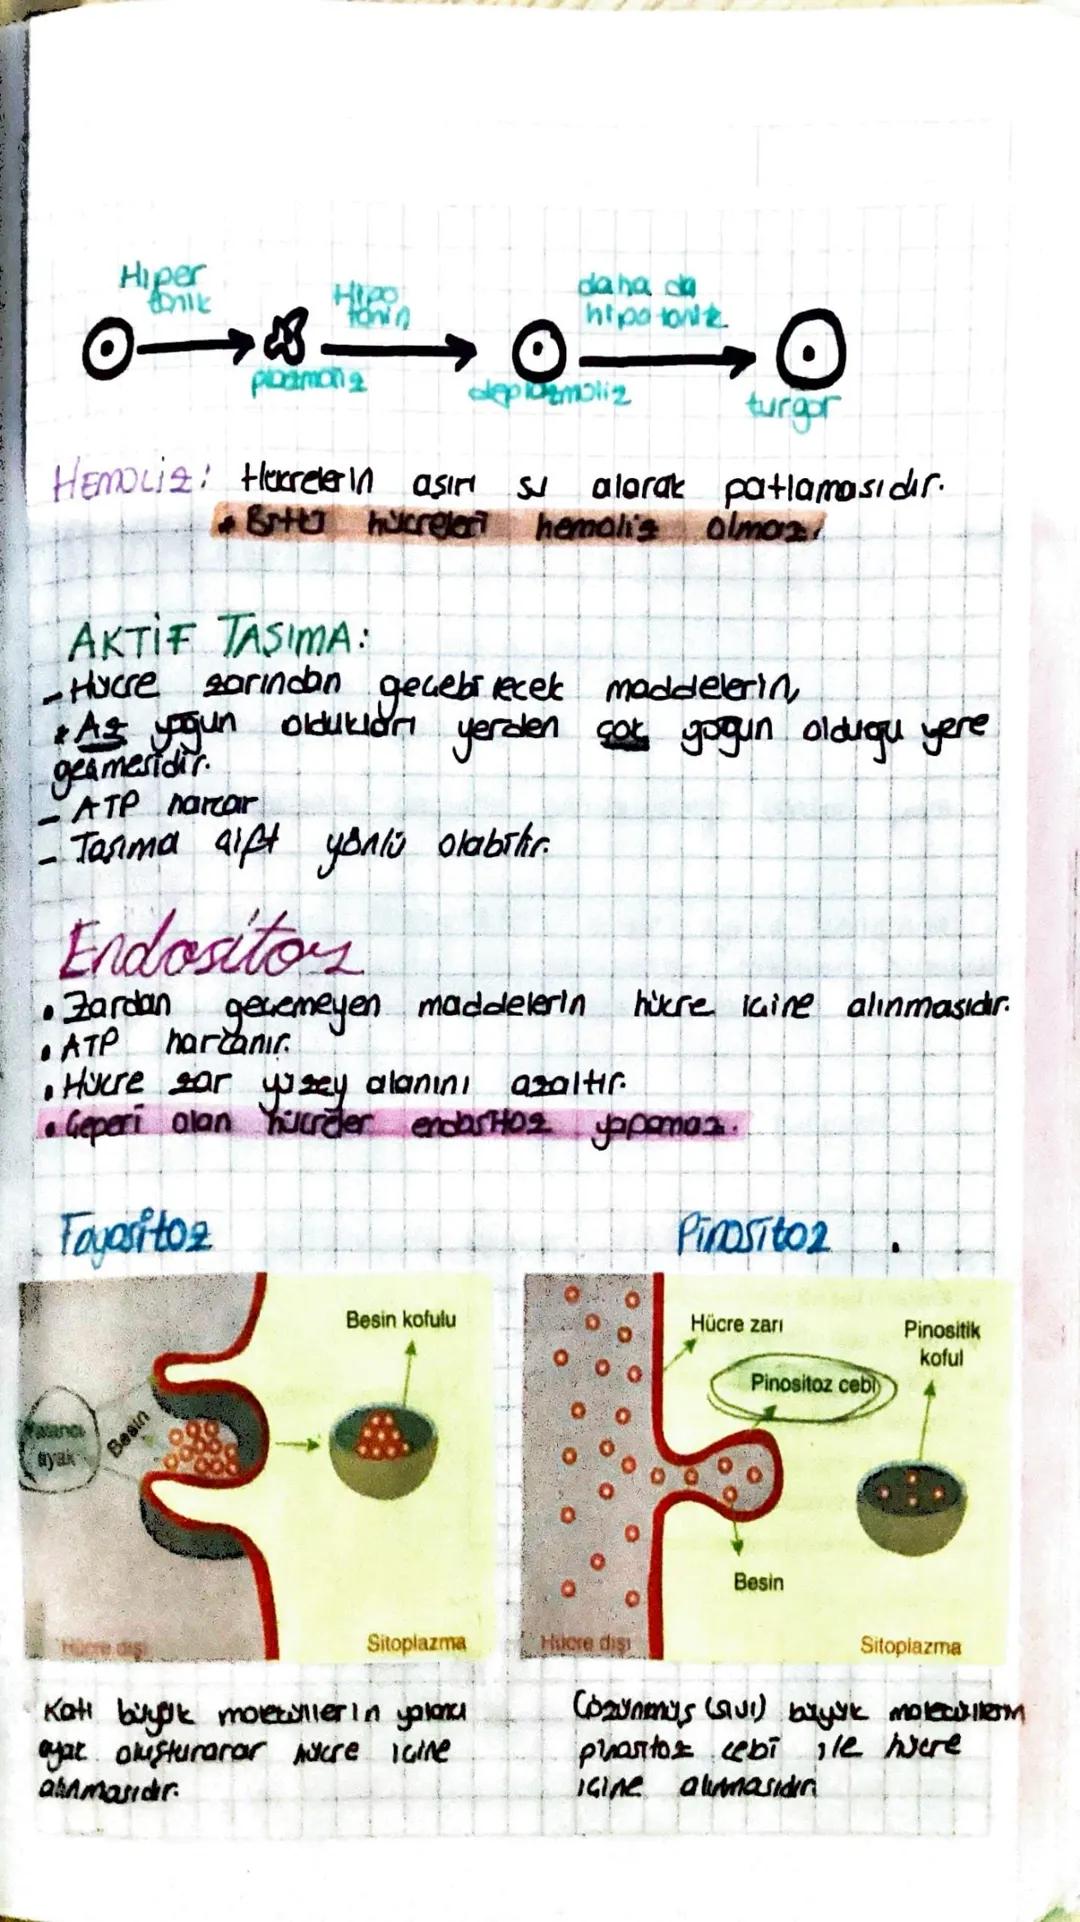 Hiper
tonik
Hipo
tonin
daha da
hipotonik
plazmoliz
deplazmoliz
turgor
HEMOLİZ: Hücrelerin aşırı su alarak patlamasıdır.
* Bitki hücreleri hemoliz olmaz.
AKTİF TAŞIMA:
- Hücre zarından geçebilecek maddelerin,
* Az yoğun oldukları yerden çok yoğun olduğu yere
geçmesidir.
- ATP harcar
- Taşıma çift yönlü olabilir.
Endositoz
• Zardan geçemeyen maddelerin hücre içine alınmasıdır.
• ATP harcanır.
• Hücre zar yüzey alanını azaltır.
• Çeperi olan hücreler endositoz yapamaz.
Fagositoz
Pinositoz
Besin kofulu
Yalancı
ayak
Besin
Hücre dışı
Sitoplazma
Hücre zarı
Pinositik
koful
Pinositoz cebi
Besin
Hücre dışı
Sitoplazma
Katı büyük moleküllerin yalancı
ayak oluşturarak hücre içine
alınmasıdır.
Çözünmüş (sıvı) büyük moleküllerin
pinositoz cebi ile hücre
içine alınmasıdır